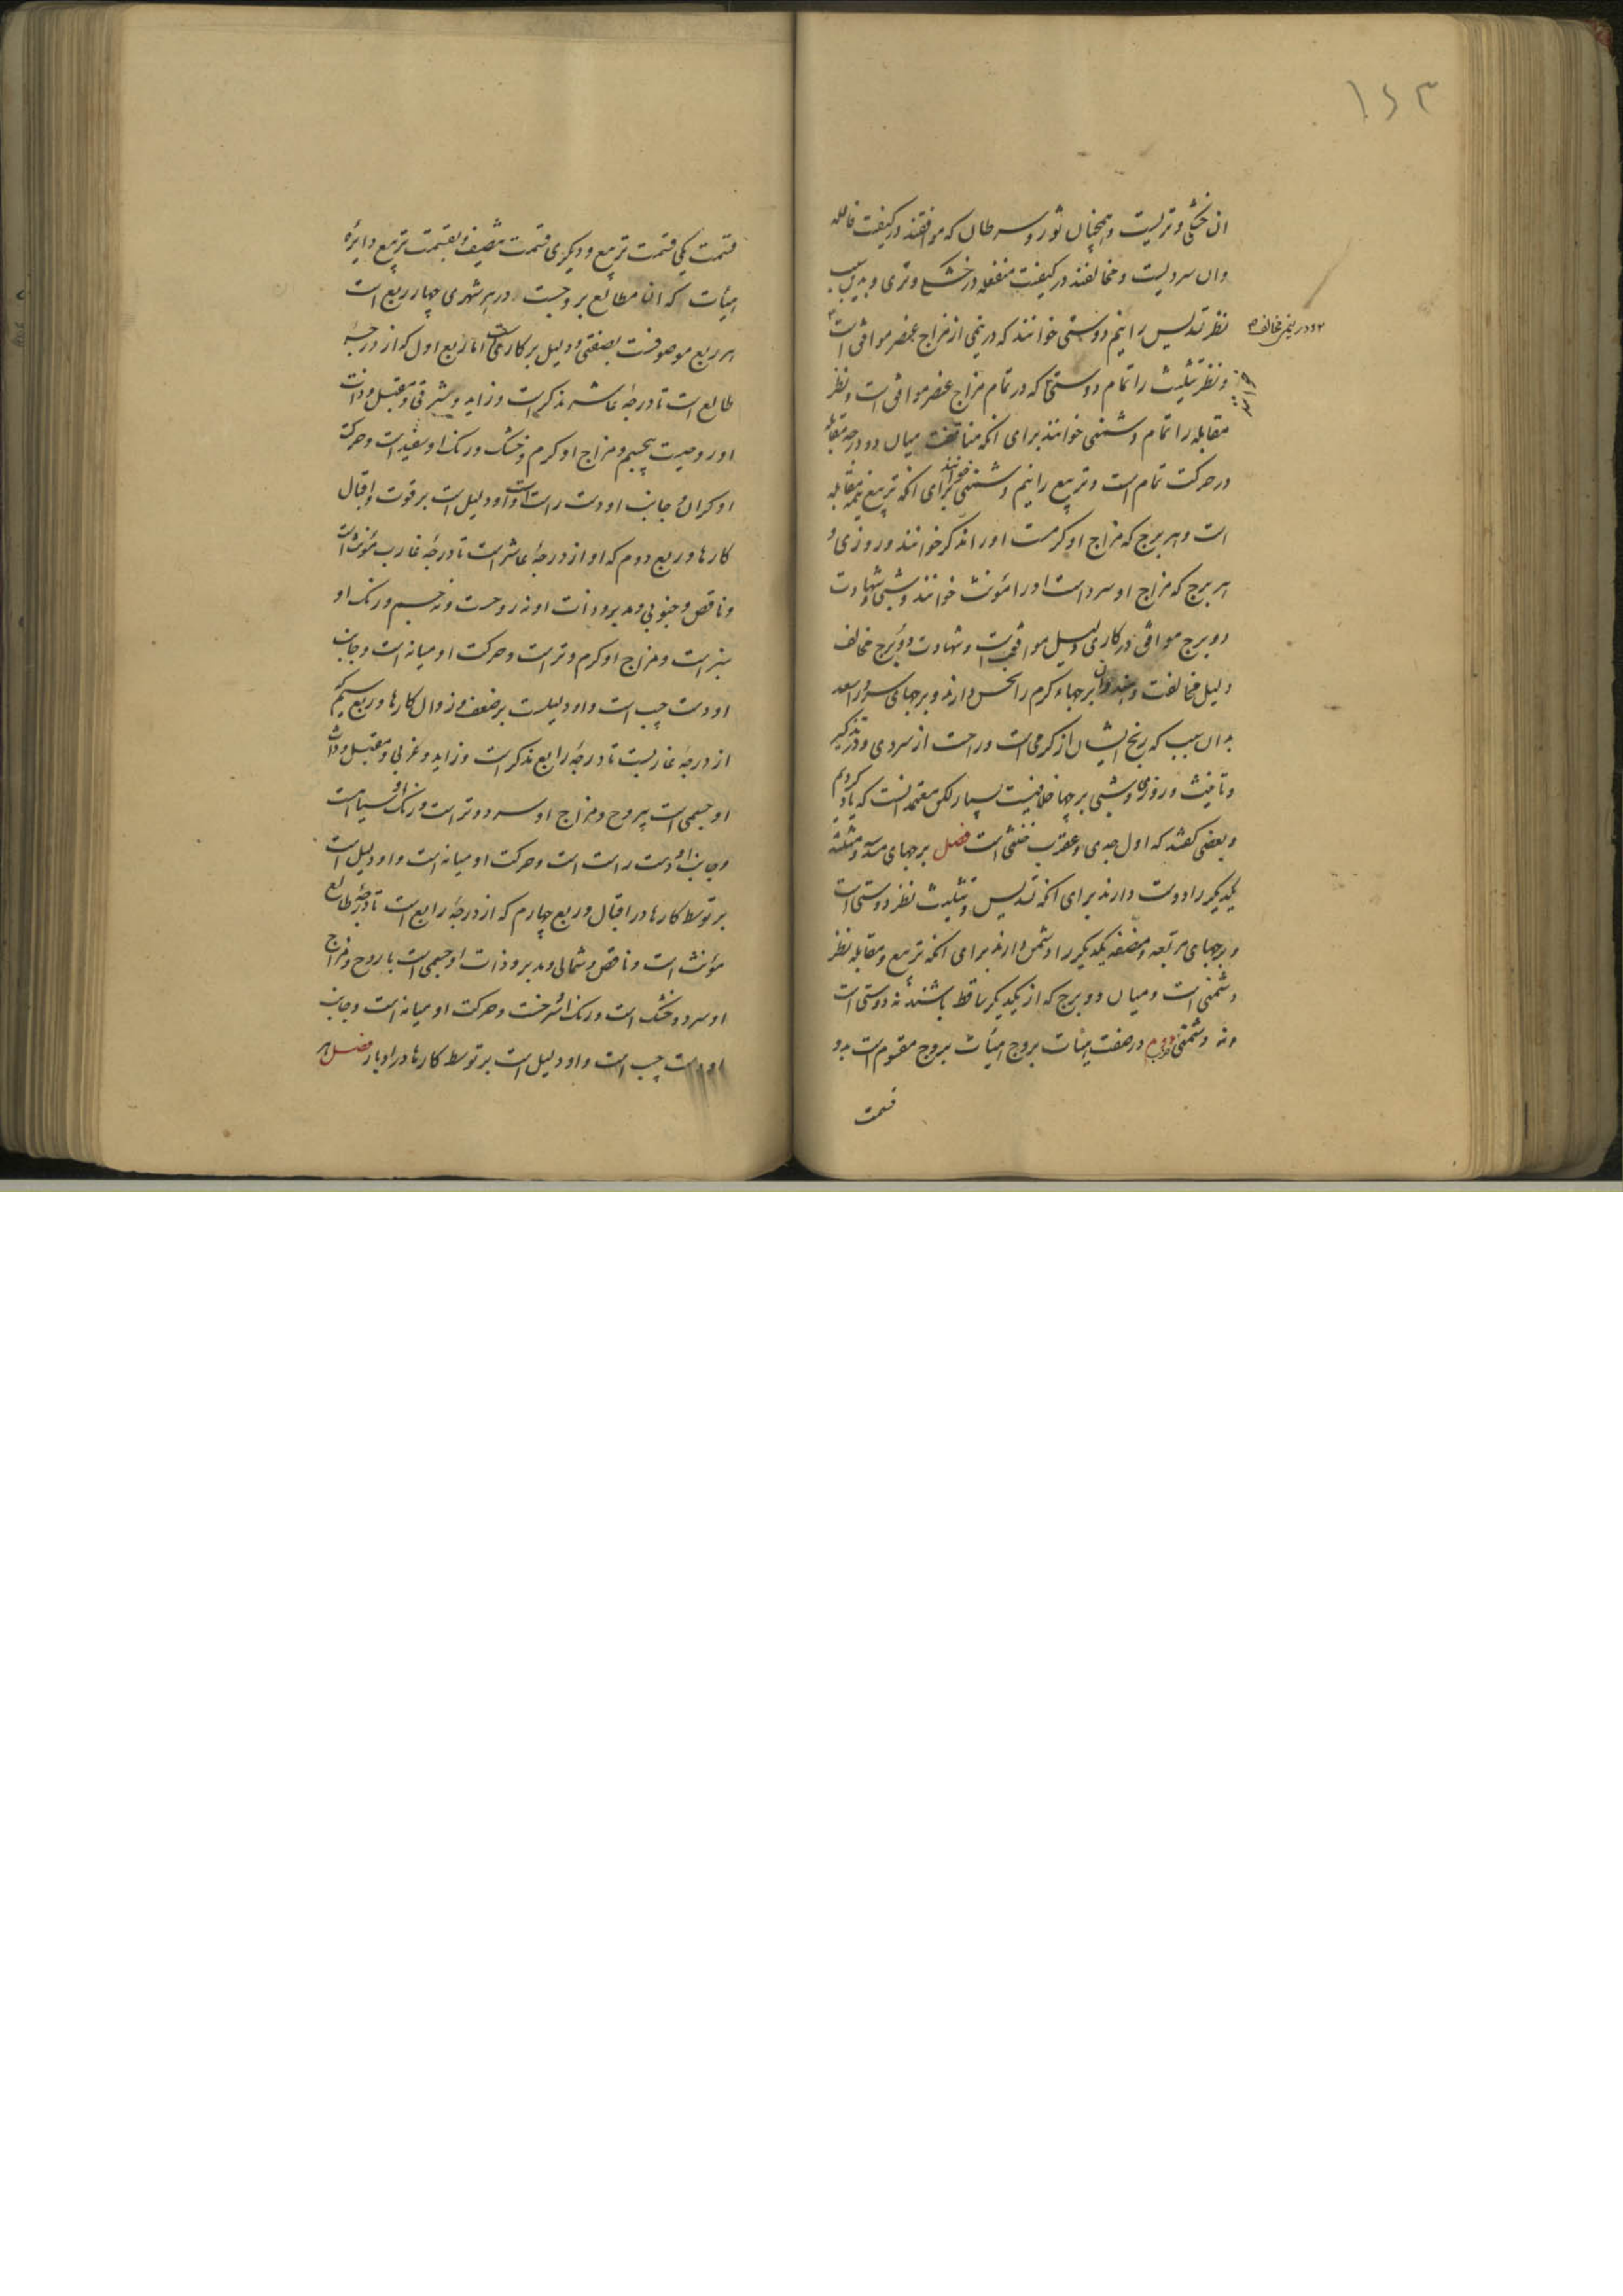 ۱۶۳
ان خشکی و تریست و همچنان ثور و سرطان که موافقند در کیفیت فاعله
وان سردیست و مخالفند در کیفیت منفعله در خشکی و تری و بدین سبب
نظر تسدیس را نیم دوستی خوانند که در نیمی از مزاج عنصر موافق است
و در نیمی مخالف
و نظر تثلیث را تمام دوستی که در تمام مزاج عنصر موافق است و نظر
مقابله را تمام دشمنی خوانند برای انکه مناقضت میان دو درجه مقابله
در حرکت تمام است و تربیع را نیم دشمنی خوانند برای انکه تربیع نیمه مقابله
است و هر برج که مزاج او کرمست او را مذکر خوانند و روزی و
هر برج که مزاج او سرد است او را مؤنث خوانند و شبی و شهادت
دو برج موافق در کاری دلیل موافقت است و شهادت دو برج مخالف
دلیل مخالفت و هندوان برجهاء کرم را نحس دارند و برجهای سرد را سعد
بدان سبب که رنج ایشان از کرمی است و راحت از سردی و در تذکیر
و تانیث و روزی و شبی برجها خلافیست بسیار لکن معتمد انست که یاد کردیم
و بعضی کفتند که اول جدی و عقرب خنثی است فصل برجهای مسدسه و مثلثه
یکدیکر را دوست دارند برای انکه تسدیس و تثلیث نظر دوستی است
و برجهای مربعه و منصفه یکدیکر را دشمن دارند برای انکه تربیع و مقابله نظر
دشمنی است و میان دو برج که از یکدیکر ساقط باشند نه دوستی است
ونه دشمنی دوم در صفت هیئات بروج هیئات بروج مقسوم است بدو
قسمت
قسمت یکی قسمت تربیع و دیکری قسمت تنصیف و بقسمت تربیع دایره
هیئات که ان مطالع بروجست در هر شهری چهار ربع است
هر ربع موصوفست بصفتی و دلیل بر کاری است اما ربع اول که از درجه
طالع است تا درجه عاشر مذکر است و زاید و شرقی و مقبل و ذات
او روحیت بیجسم و مزاج او کرم و خشک و رنک او سفید است و حرکت
او کران و جانب او دست راست است و او دلیل است بر قوت و اقبال
کارها و ربع دوم که او از درجه عاشر است تا درجه غارب مؤنث است
و ناقص و جنوبی و مدبر و ذات او نه روحست و نه جسم و رنک او
سبز است و مزاج او کرم و تر است و حرکت او میانه است و جانب
او دست چپ است و او دلیلست بر ضعف و زوال کارها و ربع سیم که
از درجه غاربست تا درجه رابع مذکر است و زاید و غربی و مقبل و ذات
او جسمی است بیروح و مزاج او سرد و تر است و رنک او سیاهست
و جانب او دست راست است و حرکت او میانه است و او دلیل است
بر توسط کارها در اقبال و ربع چهارم که از درجه رابع است تا درجه طالع
مؤنث است و ناقص و شمالی و مدبر و ذات او جسمی است با روح و مزاج
او سرد و خشک است و رنک او سرخست و حرکت او میانه است و جانب
او دست چپ است و او دلیل است بر توسط کارها در ادبار فصل هر